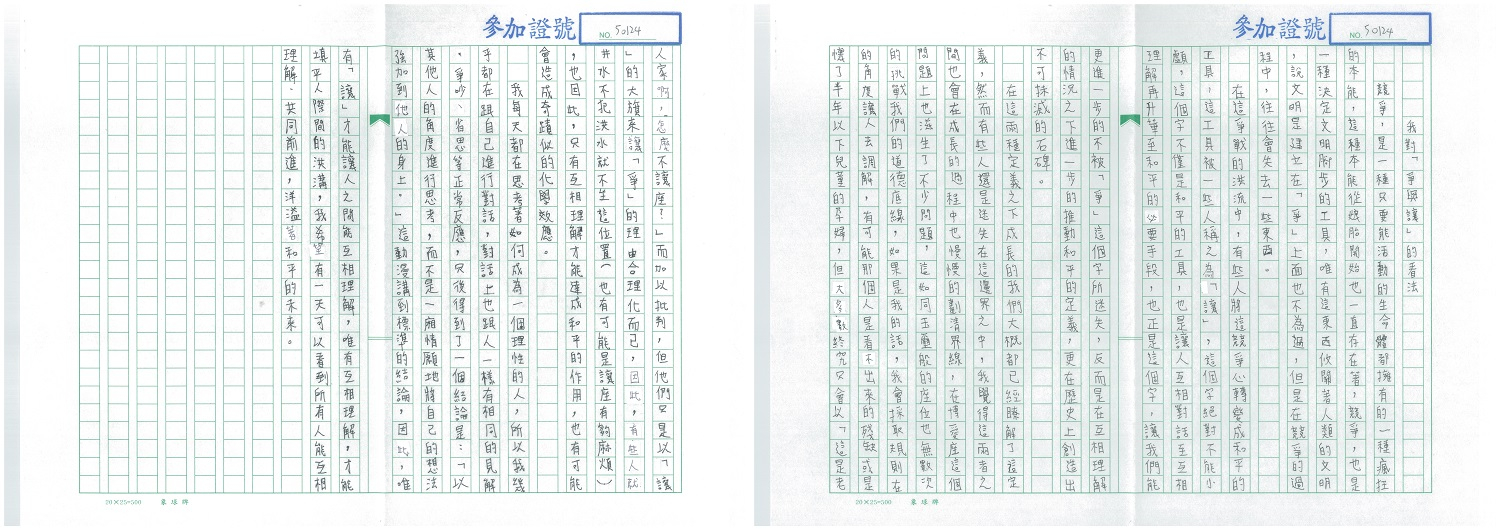 參加證號
NO. 50124
我對「爭與讓」的看法
競爭,是一種只要能活動的生命體都擁有的一種瘋狂
的本能,這種本能從胚胎開始也一直存在著,競爭,也是
一種決定文明腳步的工具,唯有這東西攸關著人類的文明
,說文明是建立在「爭」上面也不為過,但是在競爭的過
程中,往往會失去一些東西。
在這爭戰的洪流中,有些人將這競爭心轉變成和平的
工具,這工具被一些人稱之為「讓」,這個字絕對不能小
顧,這個字不僅是和平的工具,也是讓人互相對話至互相
理解再升華至和平的必要手段,也正是這個字,讓我們能
更進一步的不被「爭」這個字所迷失,反而是在互相理解
的情況之下進一步的推動和平的定義,更在歷史上創造出
不可抹滅的石碑。
在這兩種定義之下成長的我們大概都已經瞭解了這定
義,然而有些人還是迷失在這邊界之中,我覺得這兩者之
間也會在成長的過程中也慢慢的劃清界線,在博愛座這個
問題上也滋生了不少問題,這如同玉璽般的座位也無數次
的挑戰我們的道德底線,如果是我的話,我會採取規則在
的角度讓人去調解,有可能那個人是看不出來的殘缺或是
懷了半年以下兒童的孕婦,但大多數終究只會以「這是老
20×25=500 象球牌
參加證號
NO. 50124
人家啊,怎麼不讓座?」而加以批判,但他們只是以「讓
」的大旗來讓「爭」的理由合理化而已,因此,有些人就
井水不犯洪水就不坐這位置(也有可能是讓座有夠麻煩)
,也因此,只有互相理解才能達成和平的作用,也有可能
會造成奇蹟似的化學效應。
我每天都在思考著如何成為一個理性的人,所以我幾
乎都在跟自己進行對話,對話上也跟人一樣有相同的見解
、爭吵、省思等正常反應,只後得到了一個結論是:「以
其他人的角度進行思考,而不是一廂情願地將自己的想法
強加到他人的身上。」這動漫講到標準的結論,因此,唯
有「讓」才能讓人之間能互相理解,唯有互相理解,才能
填平人際間的洪溝,我希望有一天可以看到所有人能互相
理解、共同前進,洋溢著和平的未來。
20×25=500 象球牌